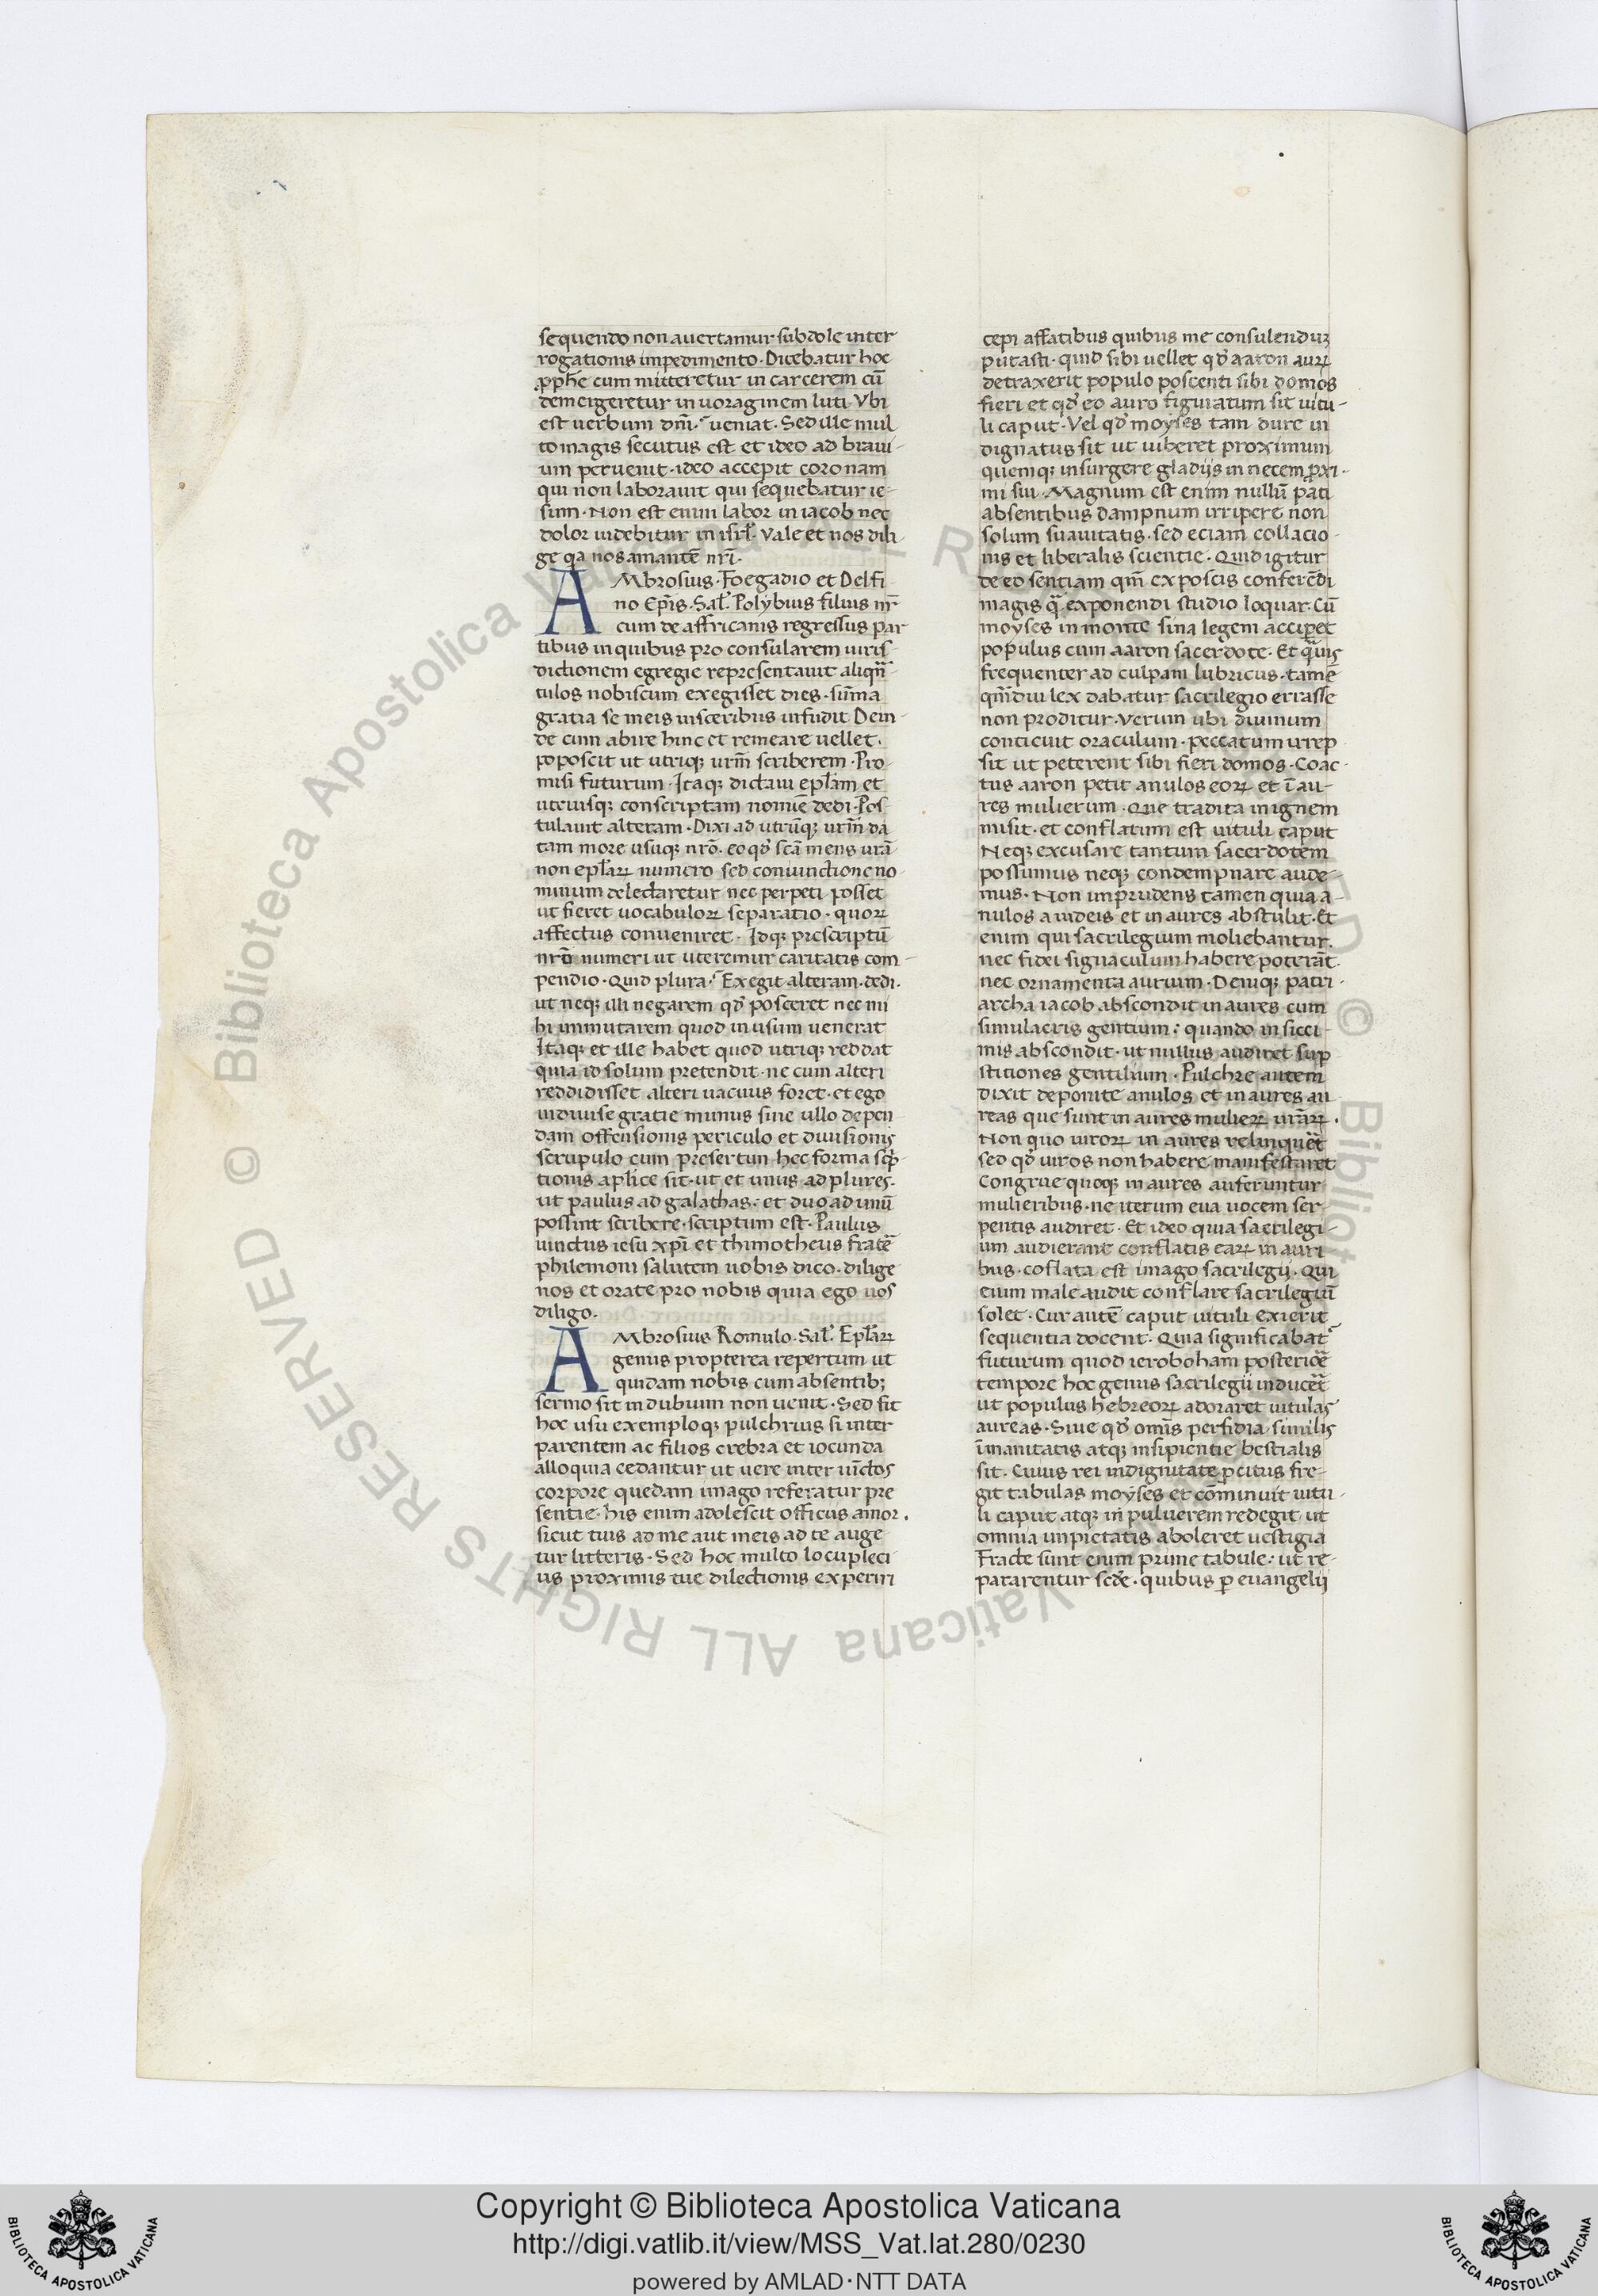 sequendo non auertamur subdole inter
rogationis impedimento. Dicebatur hoc
pphe cum mitteretur in carcerem cū
demergeretur in uoraginem luti. Vbi
est uerbum dñi. ueniat. Sed ille mul
to magis secutus est et ideo ad braui-
um peruenit. ideo accepit coronam
qui non laborauit qui sequebatur ie-
sum. Non est enim labor in iacob nec
dolor uidebitur in isrl. Vale et nos dili-
ge qa nos amantē nr̄i.
AMbrosius. Foegadio et Delfi
no Ep̄is. Sal. Polybius filius nr̄
cum de affricanis regressus par
tibus in quibus pro consularem iuris-
dictionem egregie representauit aliqn̄
tulos nobiscum exegisset dies. sūma
gratia se meis uisceribus infudit Dein-
de cum abire hinc et remeare uellet.
poposcit ut utriqꝫ ur̄m scriberem. Pro-
misi futurum. Itaqꝫ dictaui eplam et
utriusqꝫ conscriptam nomīe dedi. Pos
tulauit alteram. Dixi ad utrūqꝫ ur̄m da
tam more usuqꝫ nr̄o. eo qđ scā mens ur̄a
non eplaꝝ numero sed coniunctione no-
minum delectaretur nec perpeti posset
ut fieret uocabuloꝝ separatio. quoꝝ
affectus conueniret. Idqꝫ prescriptū
nr̄o numeri ut uteremur caritatis com-
pendio. Quid plura. Exegit alteram. dedi.
ut neqꝫ illi negarem qđ posceret nec mi
hi immutarem quod in usum uenerat
Itaqꝫ et ille habet quod utriqꝫ reddat
quia id solum pretendit. ne cum alteri
reddidisset alteri uacuus foret. et ego
indiuise gratie munus sine ullo depen-
dam offensionis periculo et diuisionis
scrupulo cum presertun hec forma scp̄-
tionis aplice sit. ut et unus ad plures.
ut paulus ad galathas. et duo ad unū
possint scribere. scriptum est. Paulus
uinctus iesu xp̄i et thimotheus fratē
philemoni salutem uobis dico. dilige
nos et orate pro nobis quia ego uos
diligo.
AMbrosius Romulo. Sal. Eplaꝝ
genus propterea repertum ut
quidam nobis cum absentib;
sermo sit in dubium non uenit. Sed fit
hoc usu exemploqꝫ pulchrius si inter
parentem ac filios crebra et iocunda
alloquia cedantur ut uere inter uīctos
corpore quedam imago referatur pre
sentie. his enim adolescit officiis amor.
sicut tuis ad me aut meis ad te auge
tur litteris. Sed hoc multo locupleci
us proximis tue dilectionis experiri
cepi affatibus quibus me consulenduꝫ
putasti. quid sibi uellet qđ aaron auꝝ
detraxerit populo poscenti sibi domos
fieri et qđ eo auro figuratum sit uitu-
li caput. Vel qđ moyses tam dure in
dignatus sit ut iuberet proximum
quemqꝫ insurgere gladijs in necem proxi-
mi sui. Magnum est enim nullū pati
absentibus dampnum irripere non
solum suauitatis. sed eciam collacio-
nis et liberalis scientie. Quid igitur
de eo sentiam qm̄ exposcis conferēdi
magis q̄ exponendi studio loquar. Cū
moyses in monte sina legem acciperet
populus cum aaron sacerdote. Et quis
frequenter ad culpam lubricus. tamē
qm̄diu lex dabatur sacrilegio errasse
non proditur. Verum ubi diuinum
conticuit oraculum. peccatum irrep
sit ut peterent sibi fieri domos. Coac-
tus aaron petit anulos eoꝝ et ī au-
res mulierum. Que tradita in ignem
misit. et conflatum est uituli caput
Neqꝫ excusare tantum sacerdotem
possumus neqꝫ condempnare aude-
mus. Non imprudens tamen quia a-
nulos a iudeis et in aures abstulit. Et
enim qui sacrilegium moliebantur.
nec fidei signaculum habere poterāt.
nec ornamenta aurium. Deniqꝫ patri-
archa iacob abscondit in aures cum
simulacris gentium: quando in sicci-
mis abscondit. ut nullus audiret sup
stitiones gentilium. Pulchre autem
dixit deponite anulos et in aures au
reas que sunt in aures mulieꝝ ur̄aꝝ.
Non quo uiroꝝ in aures relinqueret
sed qđ uiros non habere manifestaret
Congrue quoqꝫ in aures auferuntur
mulieribus. ne iterum eua uocem ser-
pentis audiret. Et ideo quia sacrilegi-
um audierant conflatis eaꝝ in auri
bus. coflata est imago sacrilegij. Qui
enim male audit conflare sacrilegiū
solet. Cur autē caput uituli exierit
sequentia docent. Quia significabat
futurum quod ieroboham posteriorē
tempore hoc genus sacrilegij induceret
ut populus hebreoꝝ adoraret uitulas
aureas. Siue qđ omīs perfidia similis
īmanitatis atqꝫ insipientie bestialis
sit. Cuius rei indignitate percitus fre-
git tabulas moyses et cōminuit uitu-
li caput atqꝫ in puluerem redegit ut
omnia impietatis aboleret uestigia
Fracte sunt enim prime tabule. ut re-
pararentur scđe. quibus ꝑ euangelij
© Biblioteca Apostolica Vaticana ALL RIGHTS RESERVED © Biblioteca Apostolica Vaticana ALL RIGHTS RESERVED
BIBLIOTECA APOSTOLICA VATICANA
Copyright © Biblioteca Apostolica Vaticana
http://digi.vatlib.it/view/MSS_Vat.lat.280/0230
powered by AMLAD·NTT DATA
BIBLIOTECA APOSTOLICA VATICANA